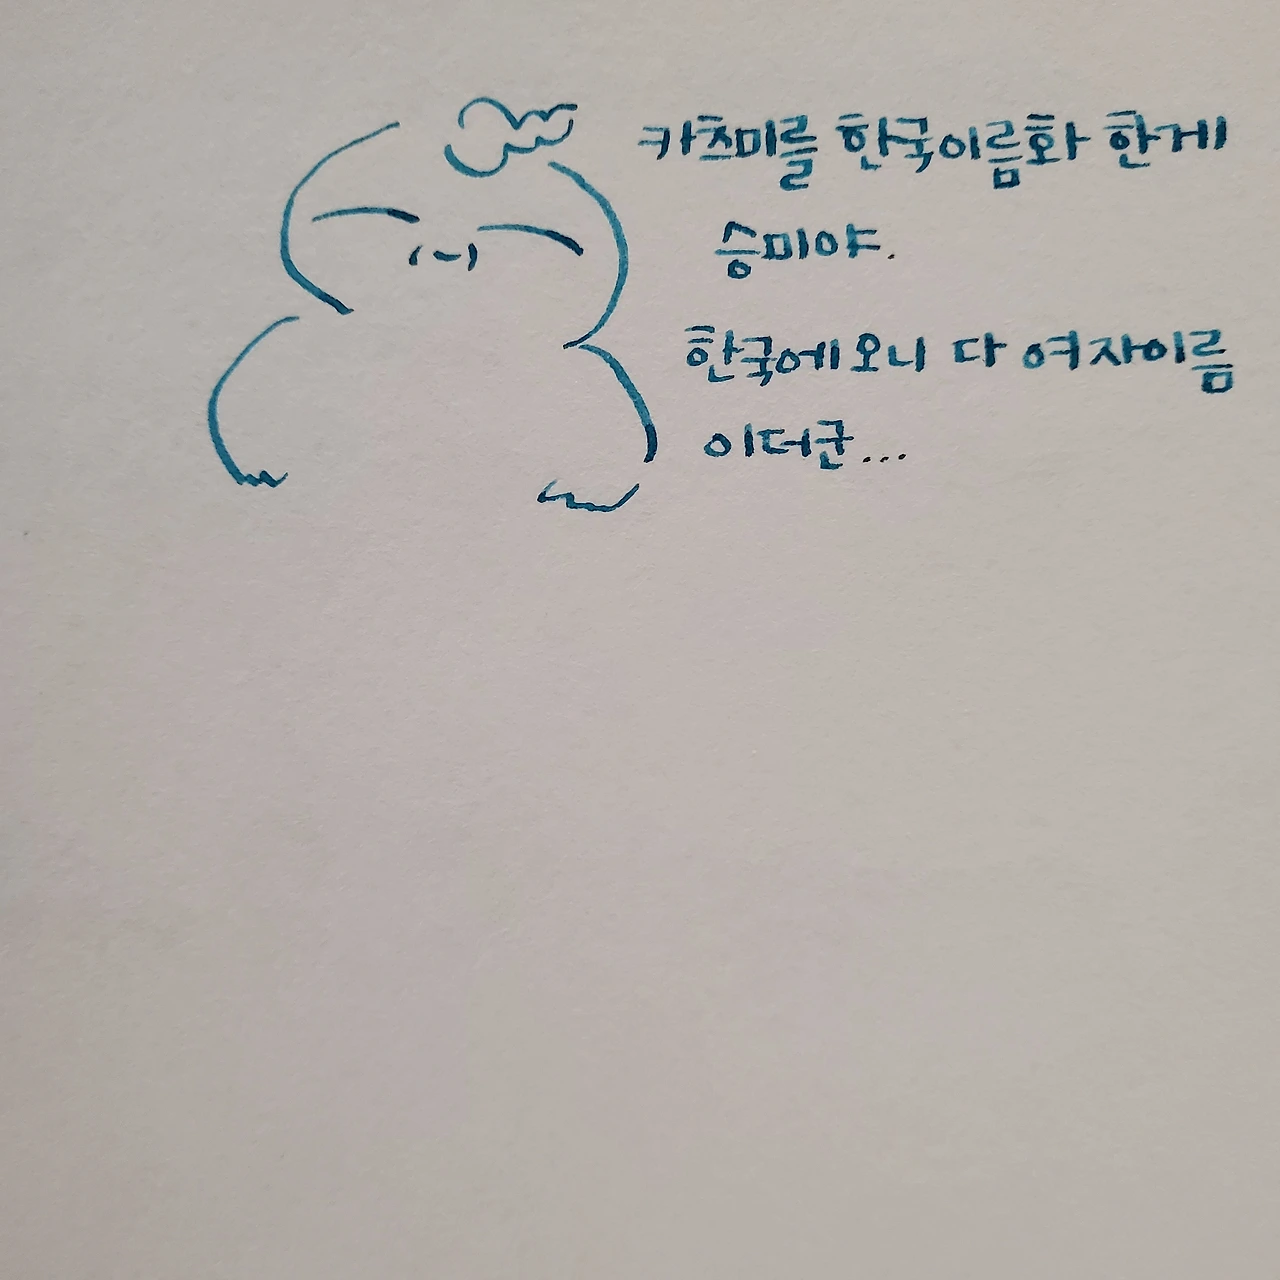 카츠미를 한국이름화 한게
승미야.
한국에오니 다 여자이름
이더군...